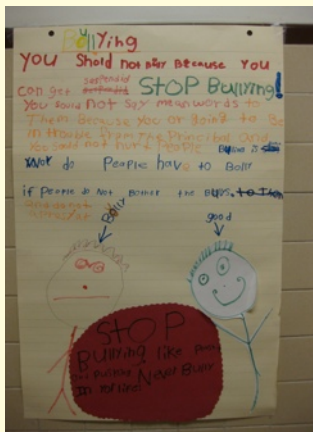 BUllYing
YOU Shold not Bolly Because YOU
can get suspended STOP Bullying!
You sould Not Say meanwords to
Them because you or going to be
in trouble from the Principal and
You sould not hurt People Bullying is
Not do People have to Bolly
if People do Not Bother the Bullys.
and arest
Bolly
good
STOP
Bullying like
Never Bully